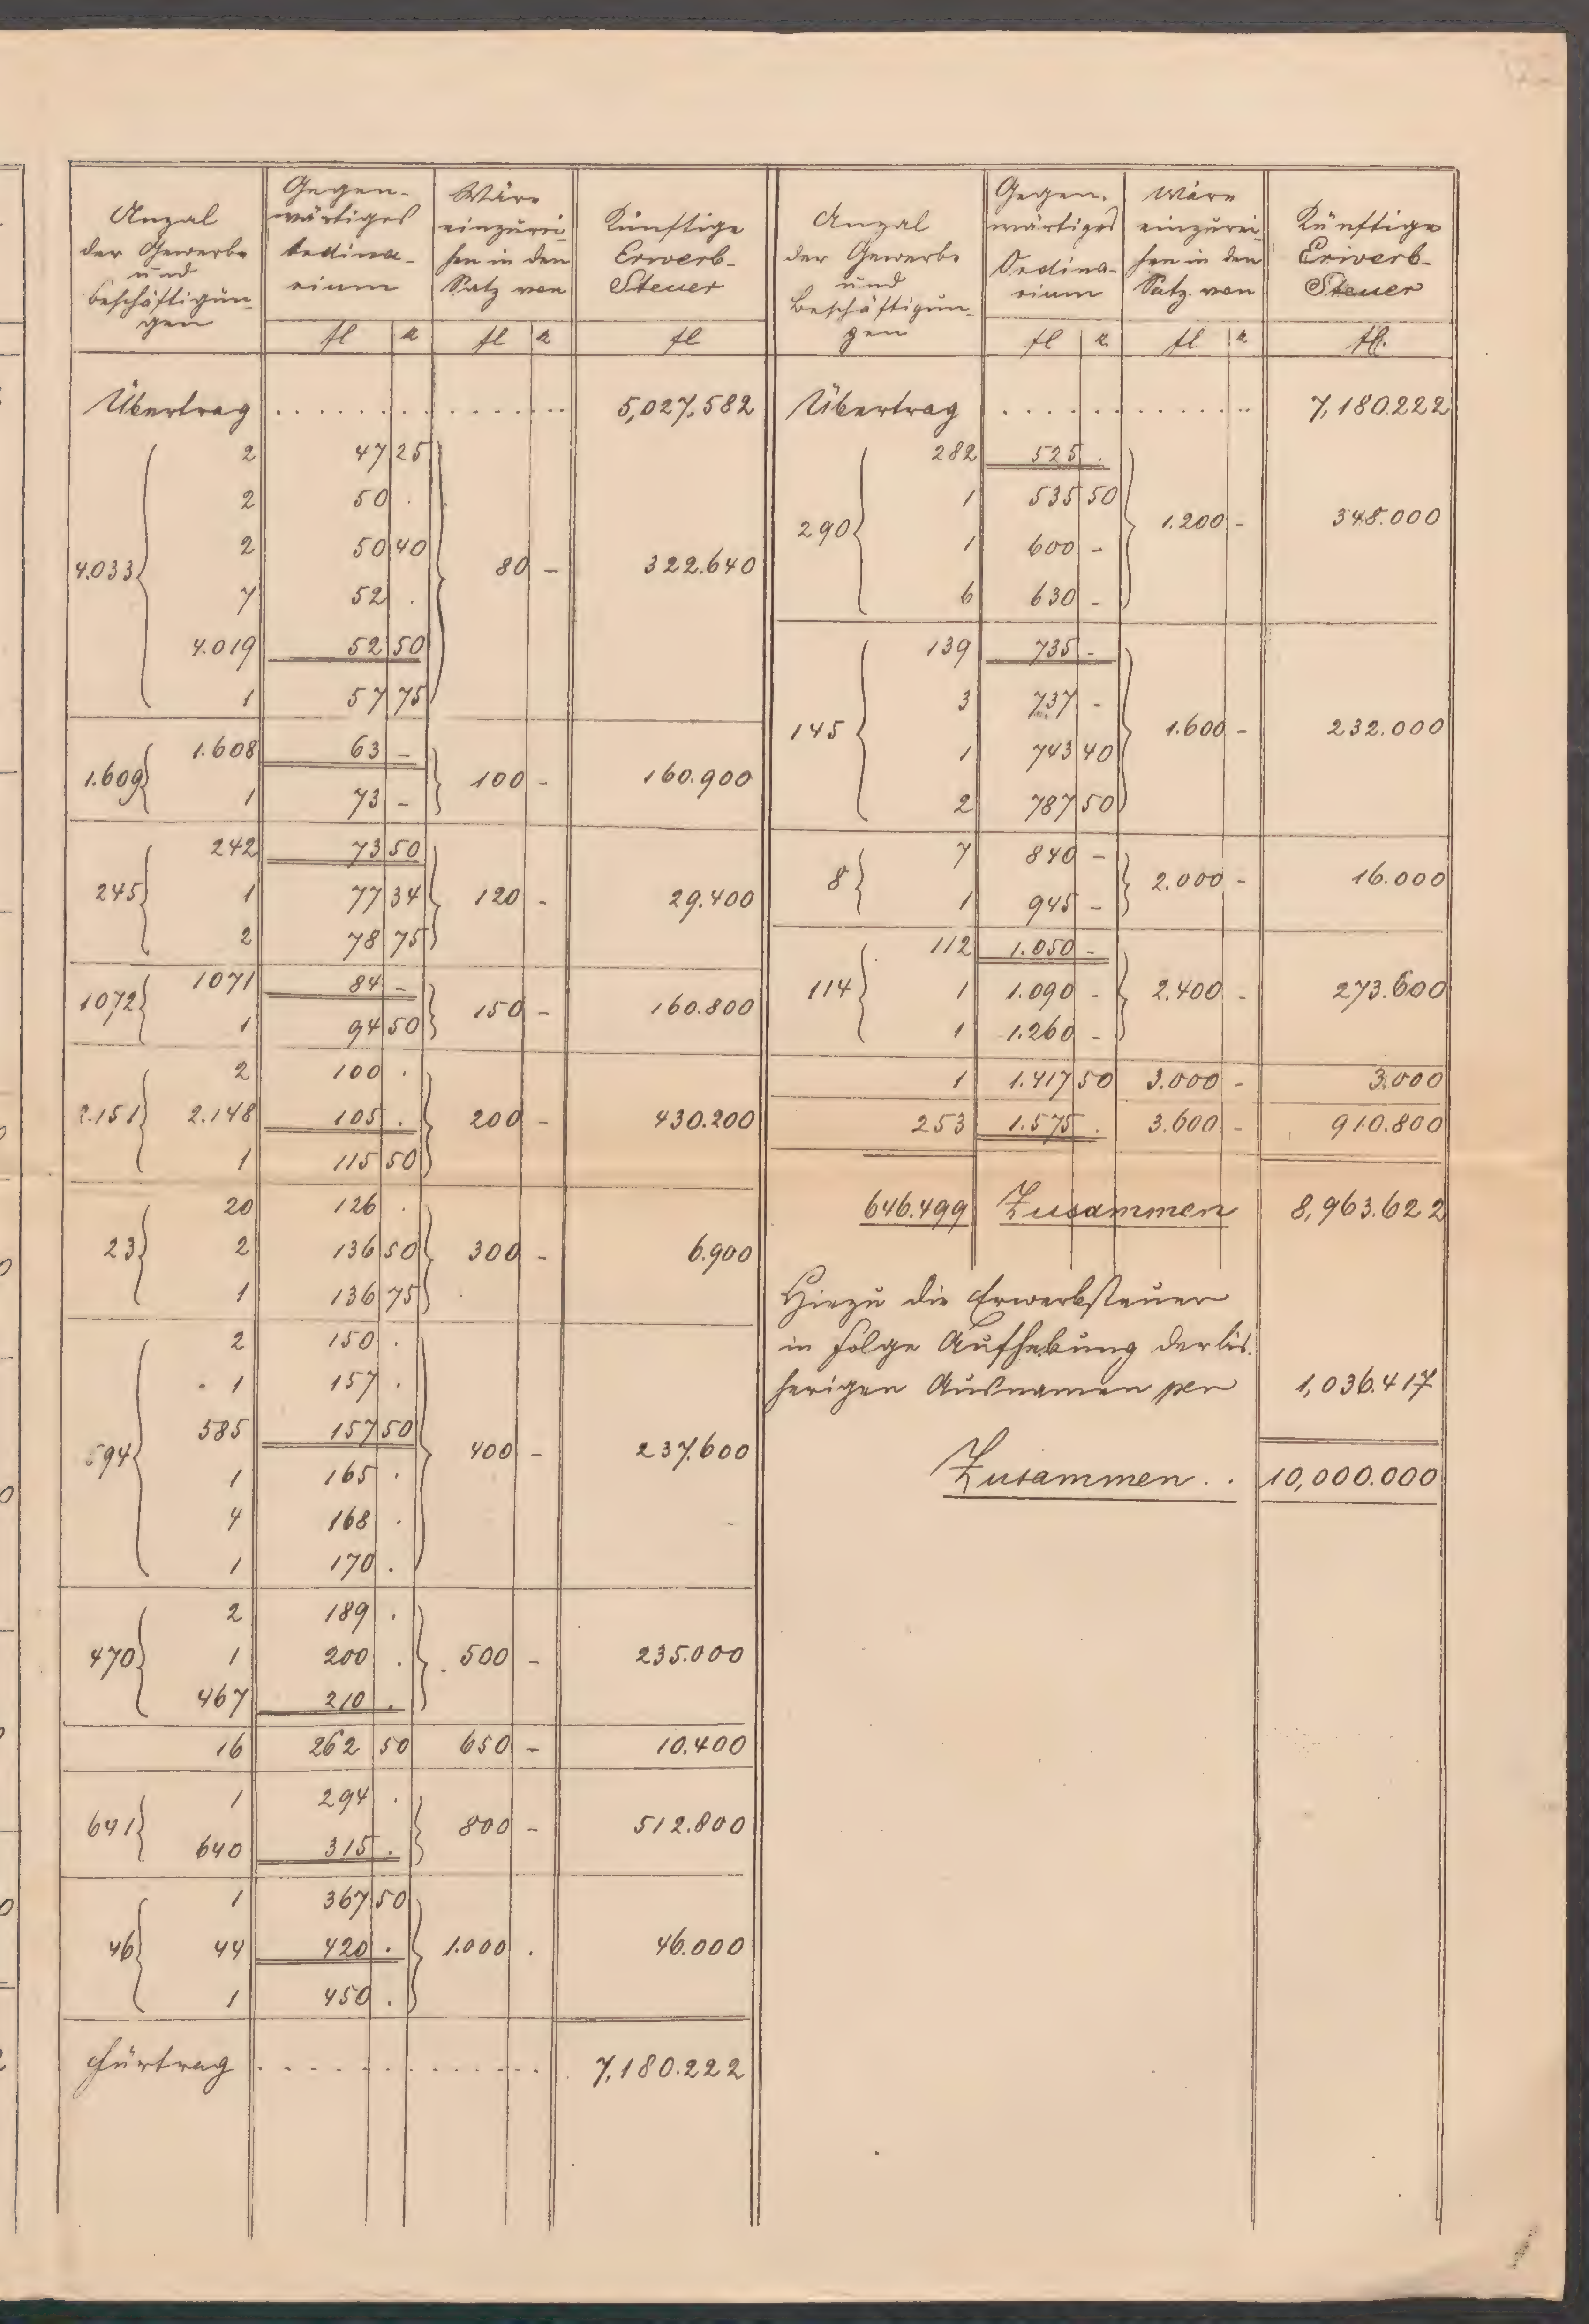 Anzal der Gewerbe und Beschäftigungen | Gegenwärtiges Ordinarium fl k | Wäre einzureihen in den Satz von fl k | Künftige Erwerb-Steuer fl
Übertrag . . . . . . . . . . . . . . . 5,027.582
4.033 { 2 | 47 25 } 80 - | 322.640
2 | 50 .
2 | 50 40
7 | 52 .
4.019 | 52 50
1 | 57 75
1.609 { 1.608 | 63 - } 100 - | 160.900
1 | 73 -
245 { 242 | 73 50 } 120 - | 29.400
1 | 77 34
2 | 78 75
1072 { 1071 | 84 - } 150 - | 160.800
1 | 94 50
2.151 { 2 | 100 . } 200 - | 430.200
2.148 | 105 .
1 | 115 50
23 { 20 | 126 . } 300 - | 6.900
2 | 136 50
1 | 136 75
594 { 2 | 150 . } 400 - | 237.600
1 | 157 .
585 | 157 50
1 | 165 .
4 | 168 .
1 | 170 .
470 { 2 | 189 . } 500 - | 235.000
1 | 200 .
467 | 210 .
16 | 262 50 | 650 - | 10.400
641 { 1 | 294 . } 800 - | 512.800
640 | 315 .
46 { 1 | 367 50 } 1.000 . | 46.000
44 | 420 .
1 | 450 .
Fürtrag . . . . . . . . . . . . . 7,180.222
Anzal der Gewerbe und Beschäftigungen | Gegenwärtiges Ordinarium fl k | Wäre einzureihen in den Satz von fl k | Künftige Erwerb-Steuer fl.
Übertrag . . . . . . . . . . . . . 7,180.222
290 { 282 | 525 . } 1.200 - | 348.000
1 | 535 50
1 | 600 -
6 | 630 -
145 { 139 | 735 - } 1.600 - | 232.000
3 | 737 -
1 | 743 40
2 | 787 50
8 { 7 | 840 - } 2.000 - | 16.000
1 | 945 -
114 { 112 | 1.050 - } 2.400 - | 273.600
1 | 1.090 -
1 | 1.260 -
1 | 1.417 50 | 3.000 - | 3.000
253 | 1.575 . | 3.600 - | 910.800
646.499 Zusammen 8,963.622
Hiezu die Erwerbsteuer
in Folge Aufhebung der bis-
herigen Ausnamen per 1,036.417
Zusammen . . 10,000.000